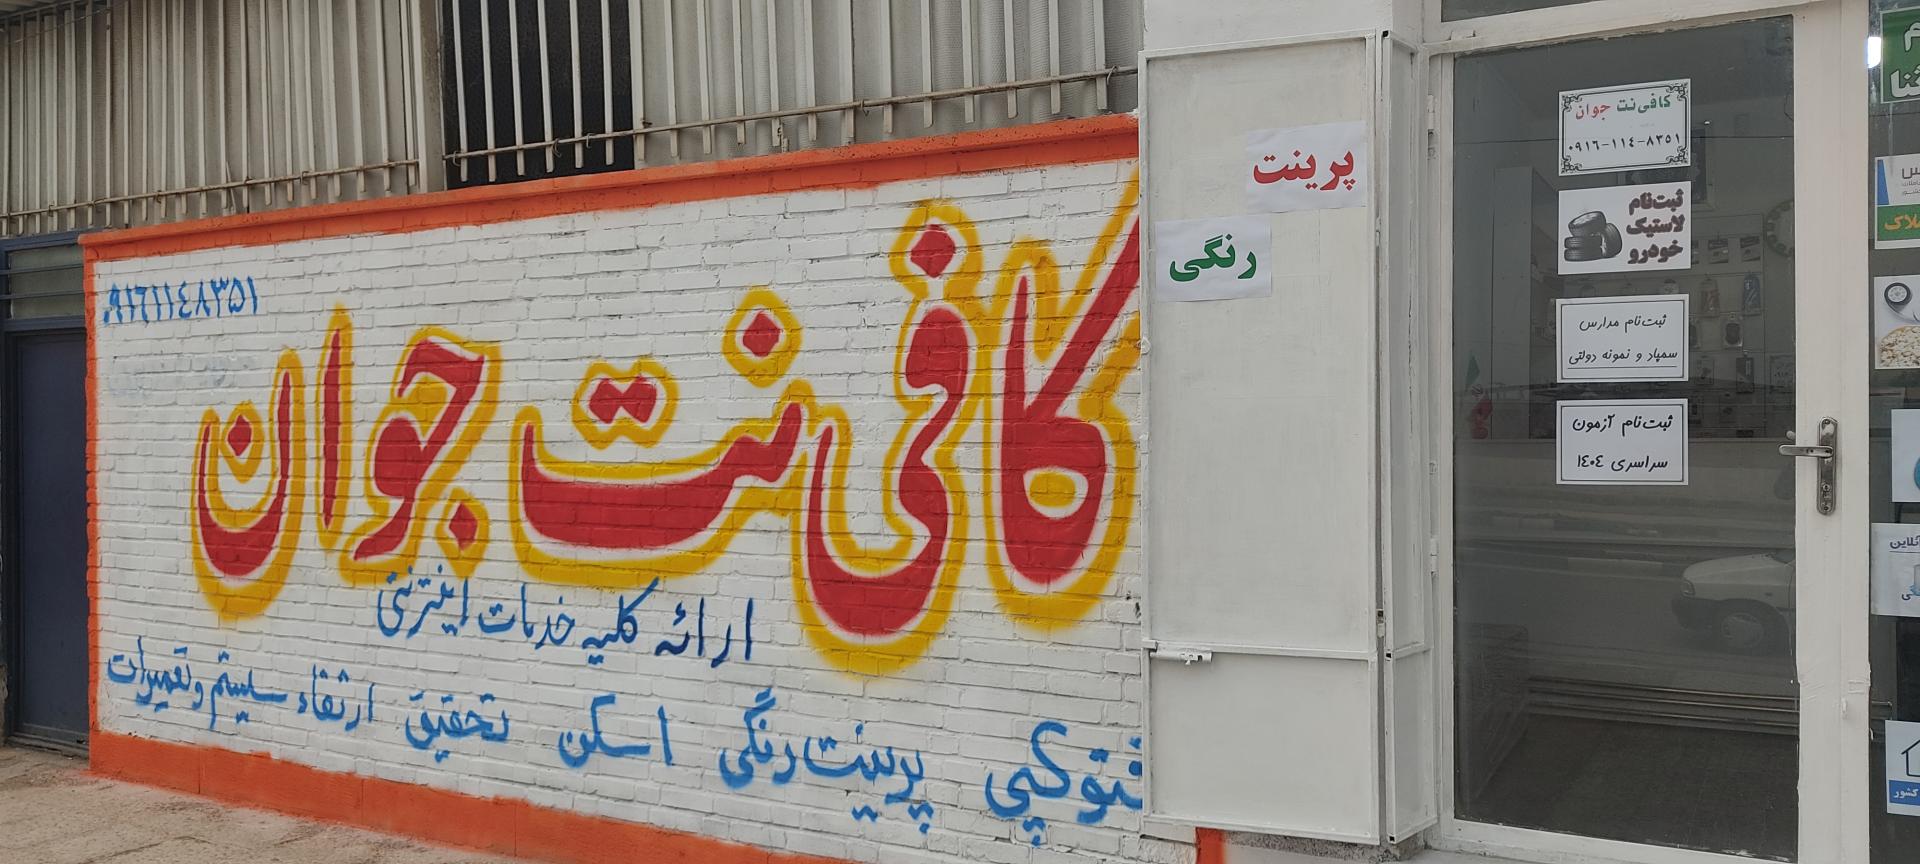 ۰۹۱۶۱۱۴۸۳۵۱
کافی نت جوان
ارائه کلیه خدمات اینترنتی
فتوکپی پرینت رنگی اسکن تحقیق ارتقاء سیستم و تعمیرات
پرینت
رنگی
کافی نت جوان
۰۹۱۶-۱۱۴-۸۳۵۱
ثبت‌نام
لاستیک
خودرو
ثبت‌نام مدارس
سمپاد و نمونه دولتی
ثبت‌نام آزمون
سراسری ۱۴۰۴
کشور